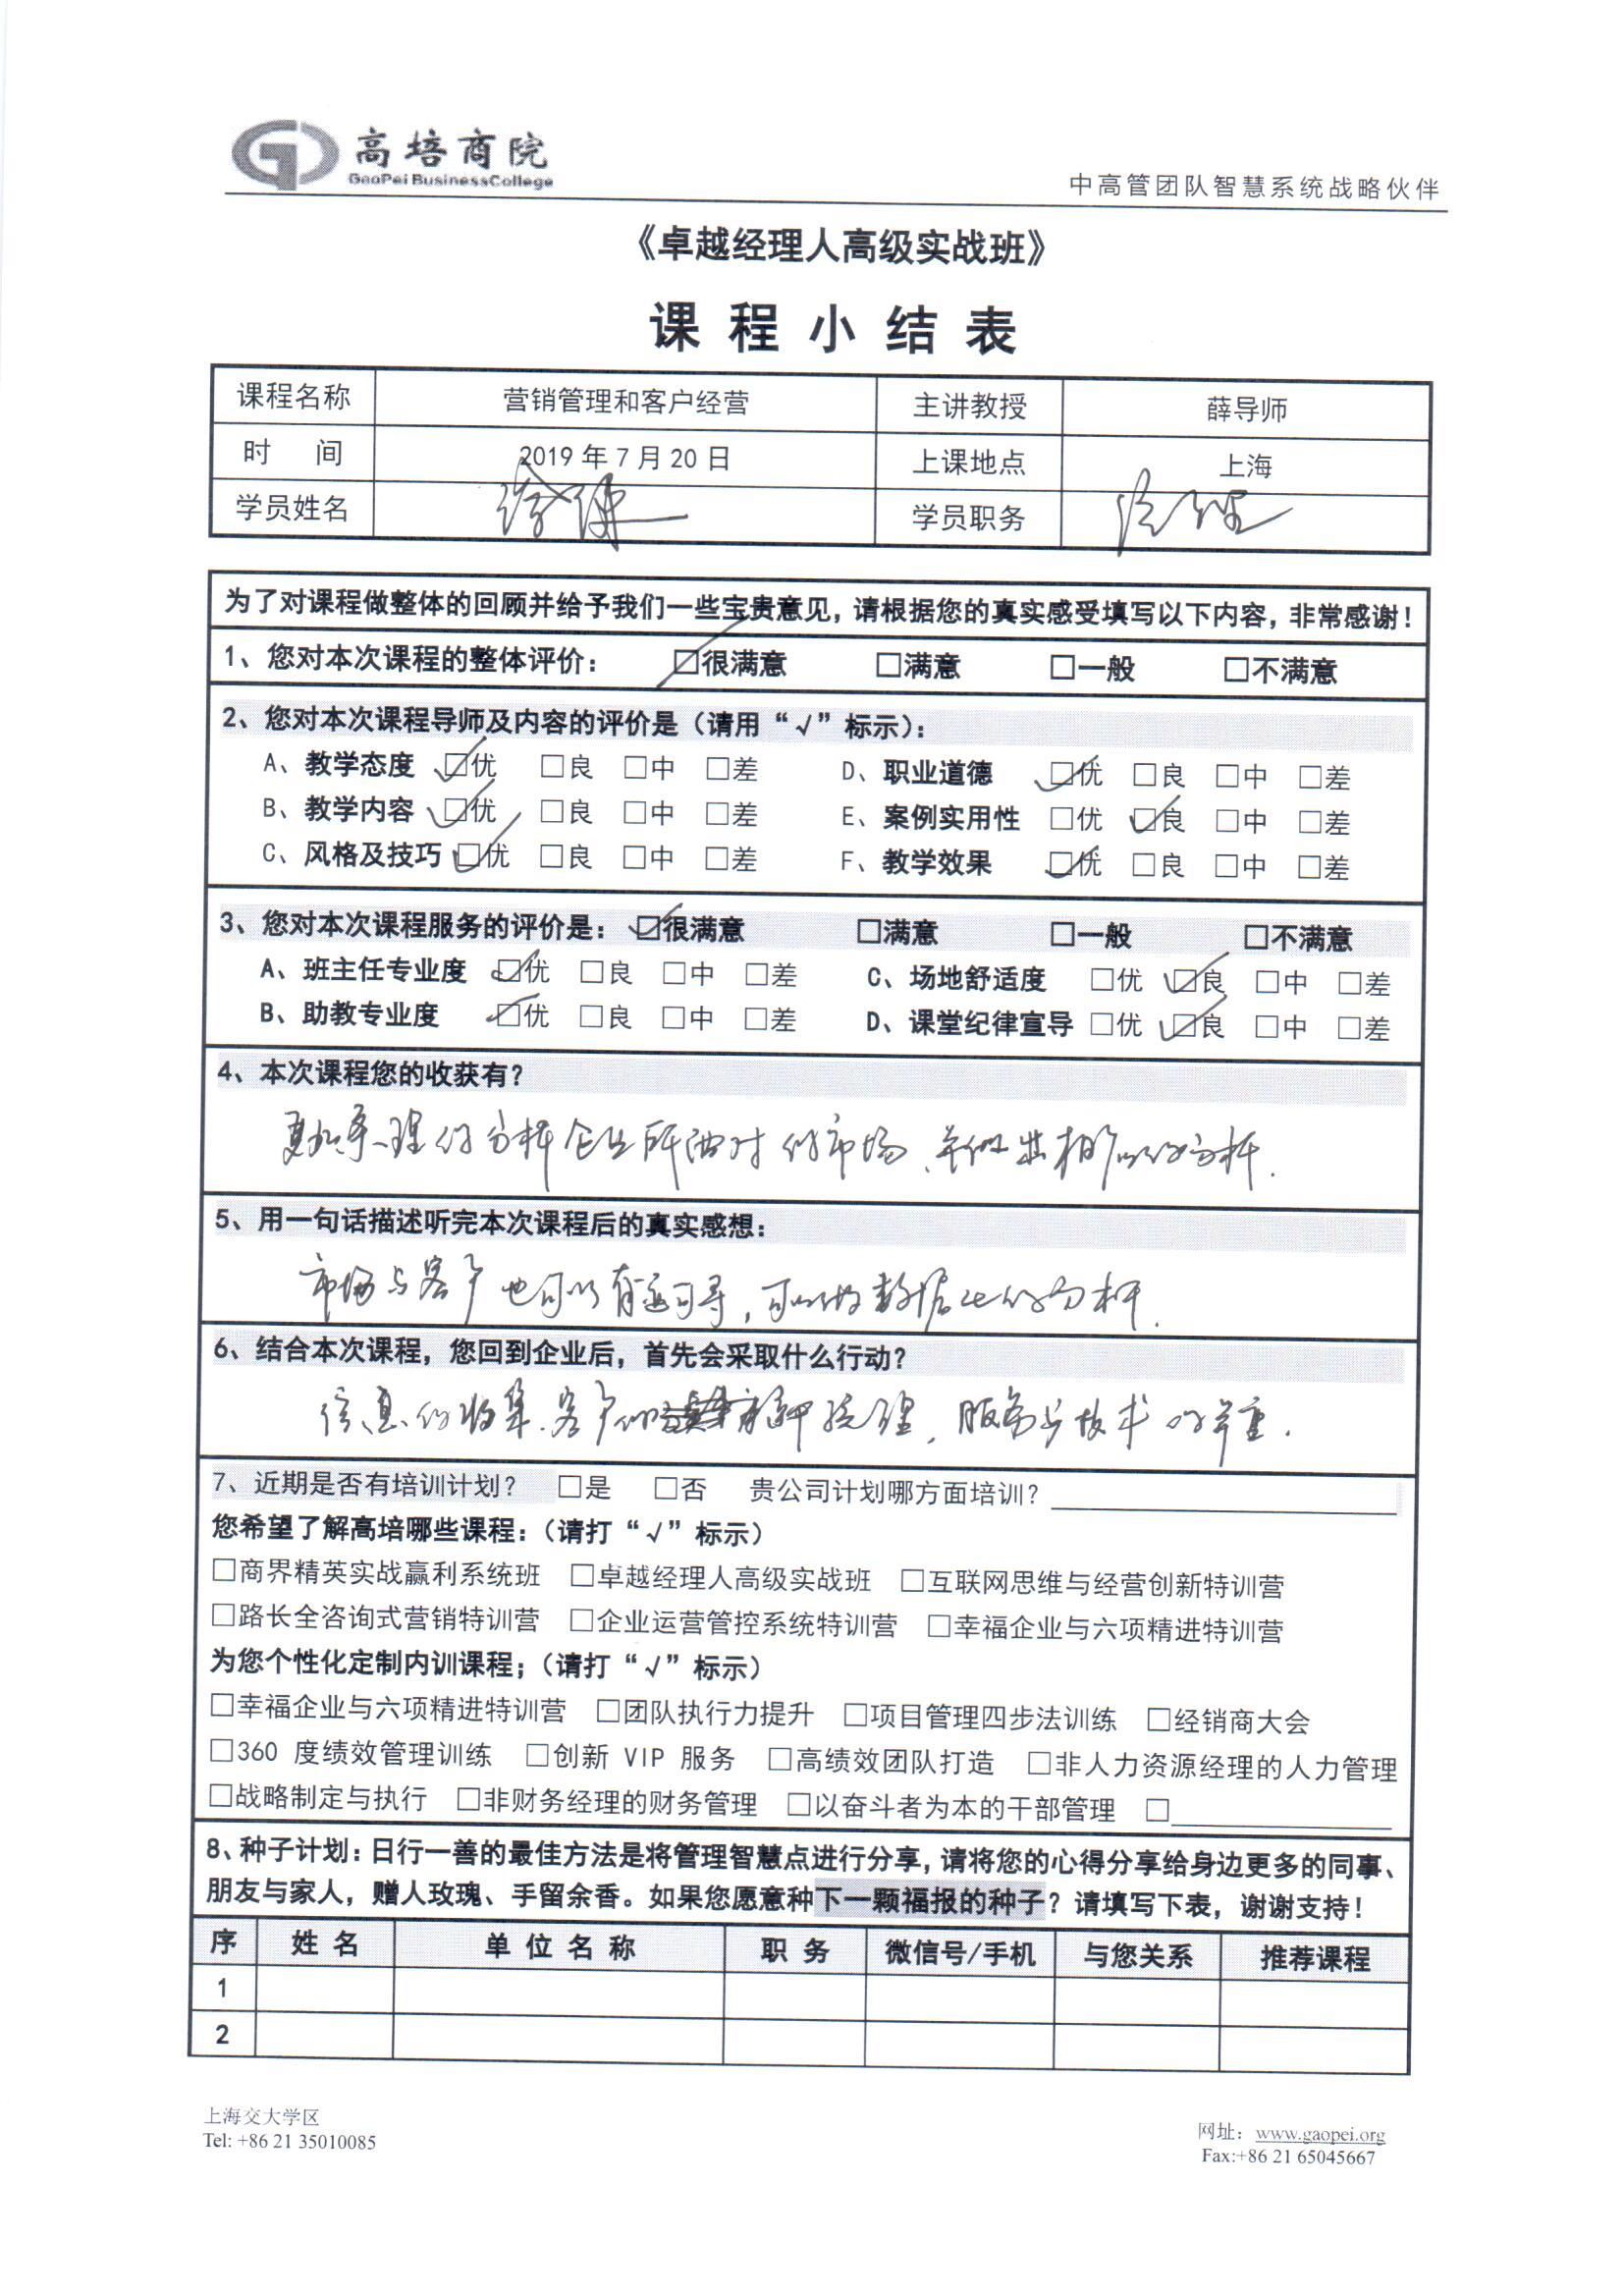 高培商院
GaoPei BusinessCollege
中高管团队智慧系统战略伙伴
《卓越经理人高级实战班》
课程小结表
课程名称 营销管理和客户经营 主讲教授 薛导师
时 间 2019年7月20日 上课地点 上海
学员姓名 徐健 学员职务 总经理
为了对课程做整体的回顾并给予我们一些宝贵意见，请根据您的真实感受填写以下内容，非常感谢！
1、您对本次课程的整体评价： ☑很满意 □满意 □一般 □不满意
2、您对本次课程导师及内容的评价是（请用“√”标示）：
A、教学态度 ☑优 □良 □中 □差 D、职业道德 ☑优 □良 □中 □差
B、教学内容 ☑优 □良 □中 □差 E、案例实用性 □优 ☑良 □中 □差
C、风格及技巧 ☑优 □良 □中 □差 F、教学效果 ☑优 □良 □中 □差
3、您对本次课程服务的评价是： ☑很满意 □满意 □一般 □不满意
A、班主任专业度 ☑优 □良 □中 □差 C、场地舒适度 □优 ☑良 □中 □差
B、助教专业度 ☑优 □良 □中 □差 D、课堂纪律宣导 □优 ☑良 □中 □差
4、本次课程您的收获有？
更加条理的分析企业所面对的市场、并做出相应的分析.
5、用一句话描述听完本次课程后的真实感想：
市场与客户也可以有迹可寻，可以做数据化的分析.
6、结合本次课程，您回到企业后，首先会采取什么行动？
信息的收集.客户的梳理，服务与技术的并重.
7、近期是否有培训计划？ □是 □否 贵公司计划哪方面培训？
您希望了解高培哪些课程：（请打“√”标示）
□商界精英实战赢利系统班 □卓越经理人高级实战班 □互联网思维与经营创新特训营
□路长全咨询式营销特训营 □企业运营管控系统特训营 □幸福企业与六项精进特训营
为您个性化定制内训课程；（请打“√”标示）
□幸福企业与六项精进特训营 □团队执行力提升 □项目管理四步法训练 □经销商大会
□360 度绩效管理训练 □创新 VIP 服务 □高绩效团队打造 □非人力资源经理的人力管理
□战略制定与执行 □非财务经理的财务管理 □以奋斗者为本的干部管理 □
8、种子计划：日行一善的最佳方法是将管理智慧点进行分享，请将您的心得分享给身边更多的同事、
朋友与家人，赠人玫瑰、手留余香。如果您愿意种下一颗福报的种子？请填写下表，谢谢支持！
序 姓名 单位名称 职务 微信号/手机 与您关系 推荐课程
1
2
上海交大学区
Tel: +86 21 35010085
网址：www.gaopei.org
Fax:+86 21 65045667